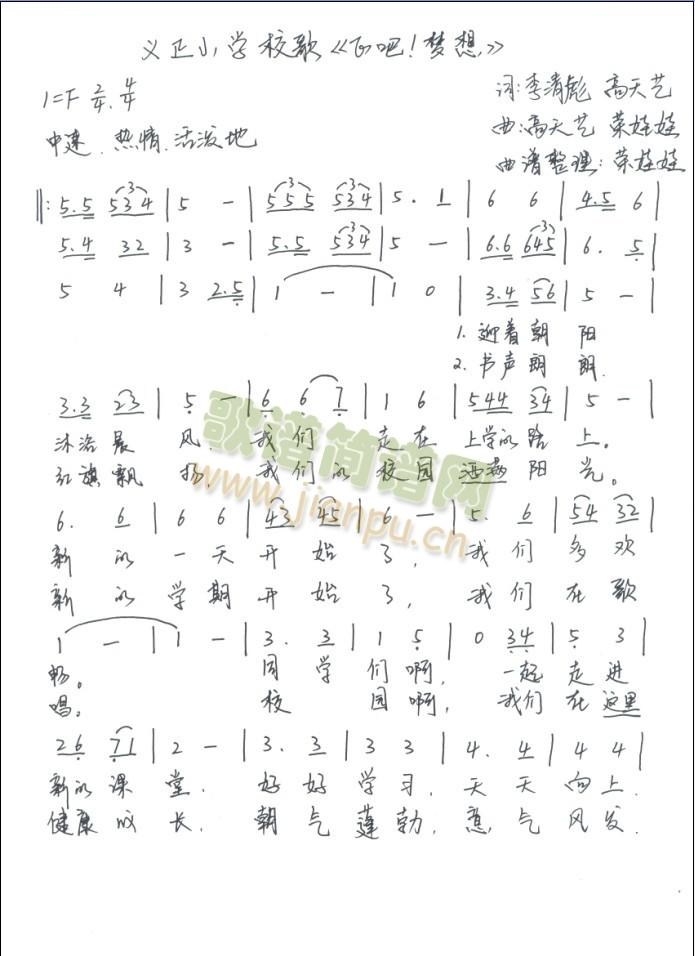 义正小学校歌《飞吧！梦想》
1=F 2/4 4/4
词:李清彪 高天艺
中速、热情、活泼地
曲:高天艺 荣娃娃
曲谱整理:荣娃娃
‖: 5.5 534 | 5 - | 555 534 | 5. 1 | 6 6 | 4.5 6 |
5.4 32 | 3 - | 5.5 534 | 5 - | 6.6 645 | 6. 5 |
5 4 | 3 2.5 | 1 - | 1 0 | 3.4 56 | 5 - |
1. 迎着朝阳
2. 书声朗朗.
3.3 23 | 5 - | 6 6 7 | 1 6 | 544 34 | 5 - |
沐浴晨风, 我们走在上学的路上。
红旗飘扬, 我们的校园洒满阳光。
6. 6 | 6 6 | 43 45 | 6 - | 5. 6 | 54 32 |
新的一天开始了, 我们多欢
新的学期开始了, 我们在歌
1 - | 1 - | 3. 3 | 1 5 | 0 34 | 5 3 |
畅。 同学们啊, 一起走进
唱。 校园啊, 我们在这里
26 71 | 2 - | 3. 3 | 3 3 | 4. 4 | 4 4 |
新的课堂. 好好学习, 天天向上.
健康成长. 朝气蓬勃, 意气风发.
歌谱简谱网
www.jianpu.cn